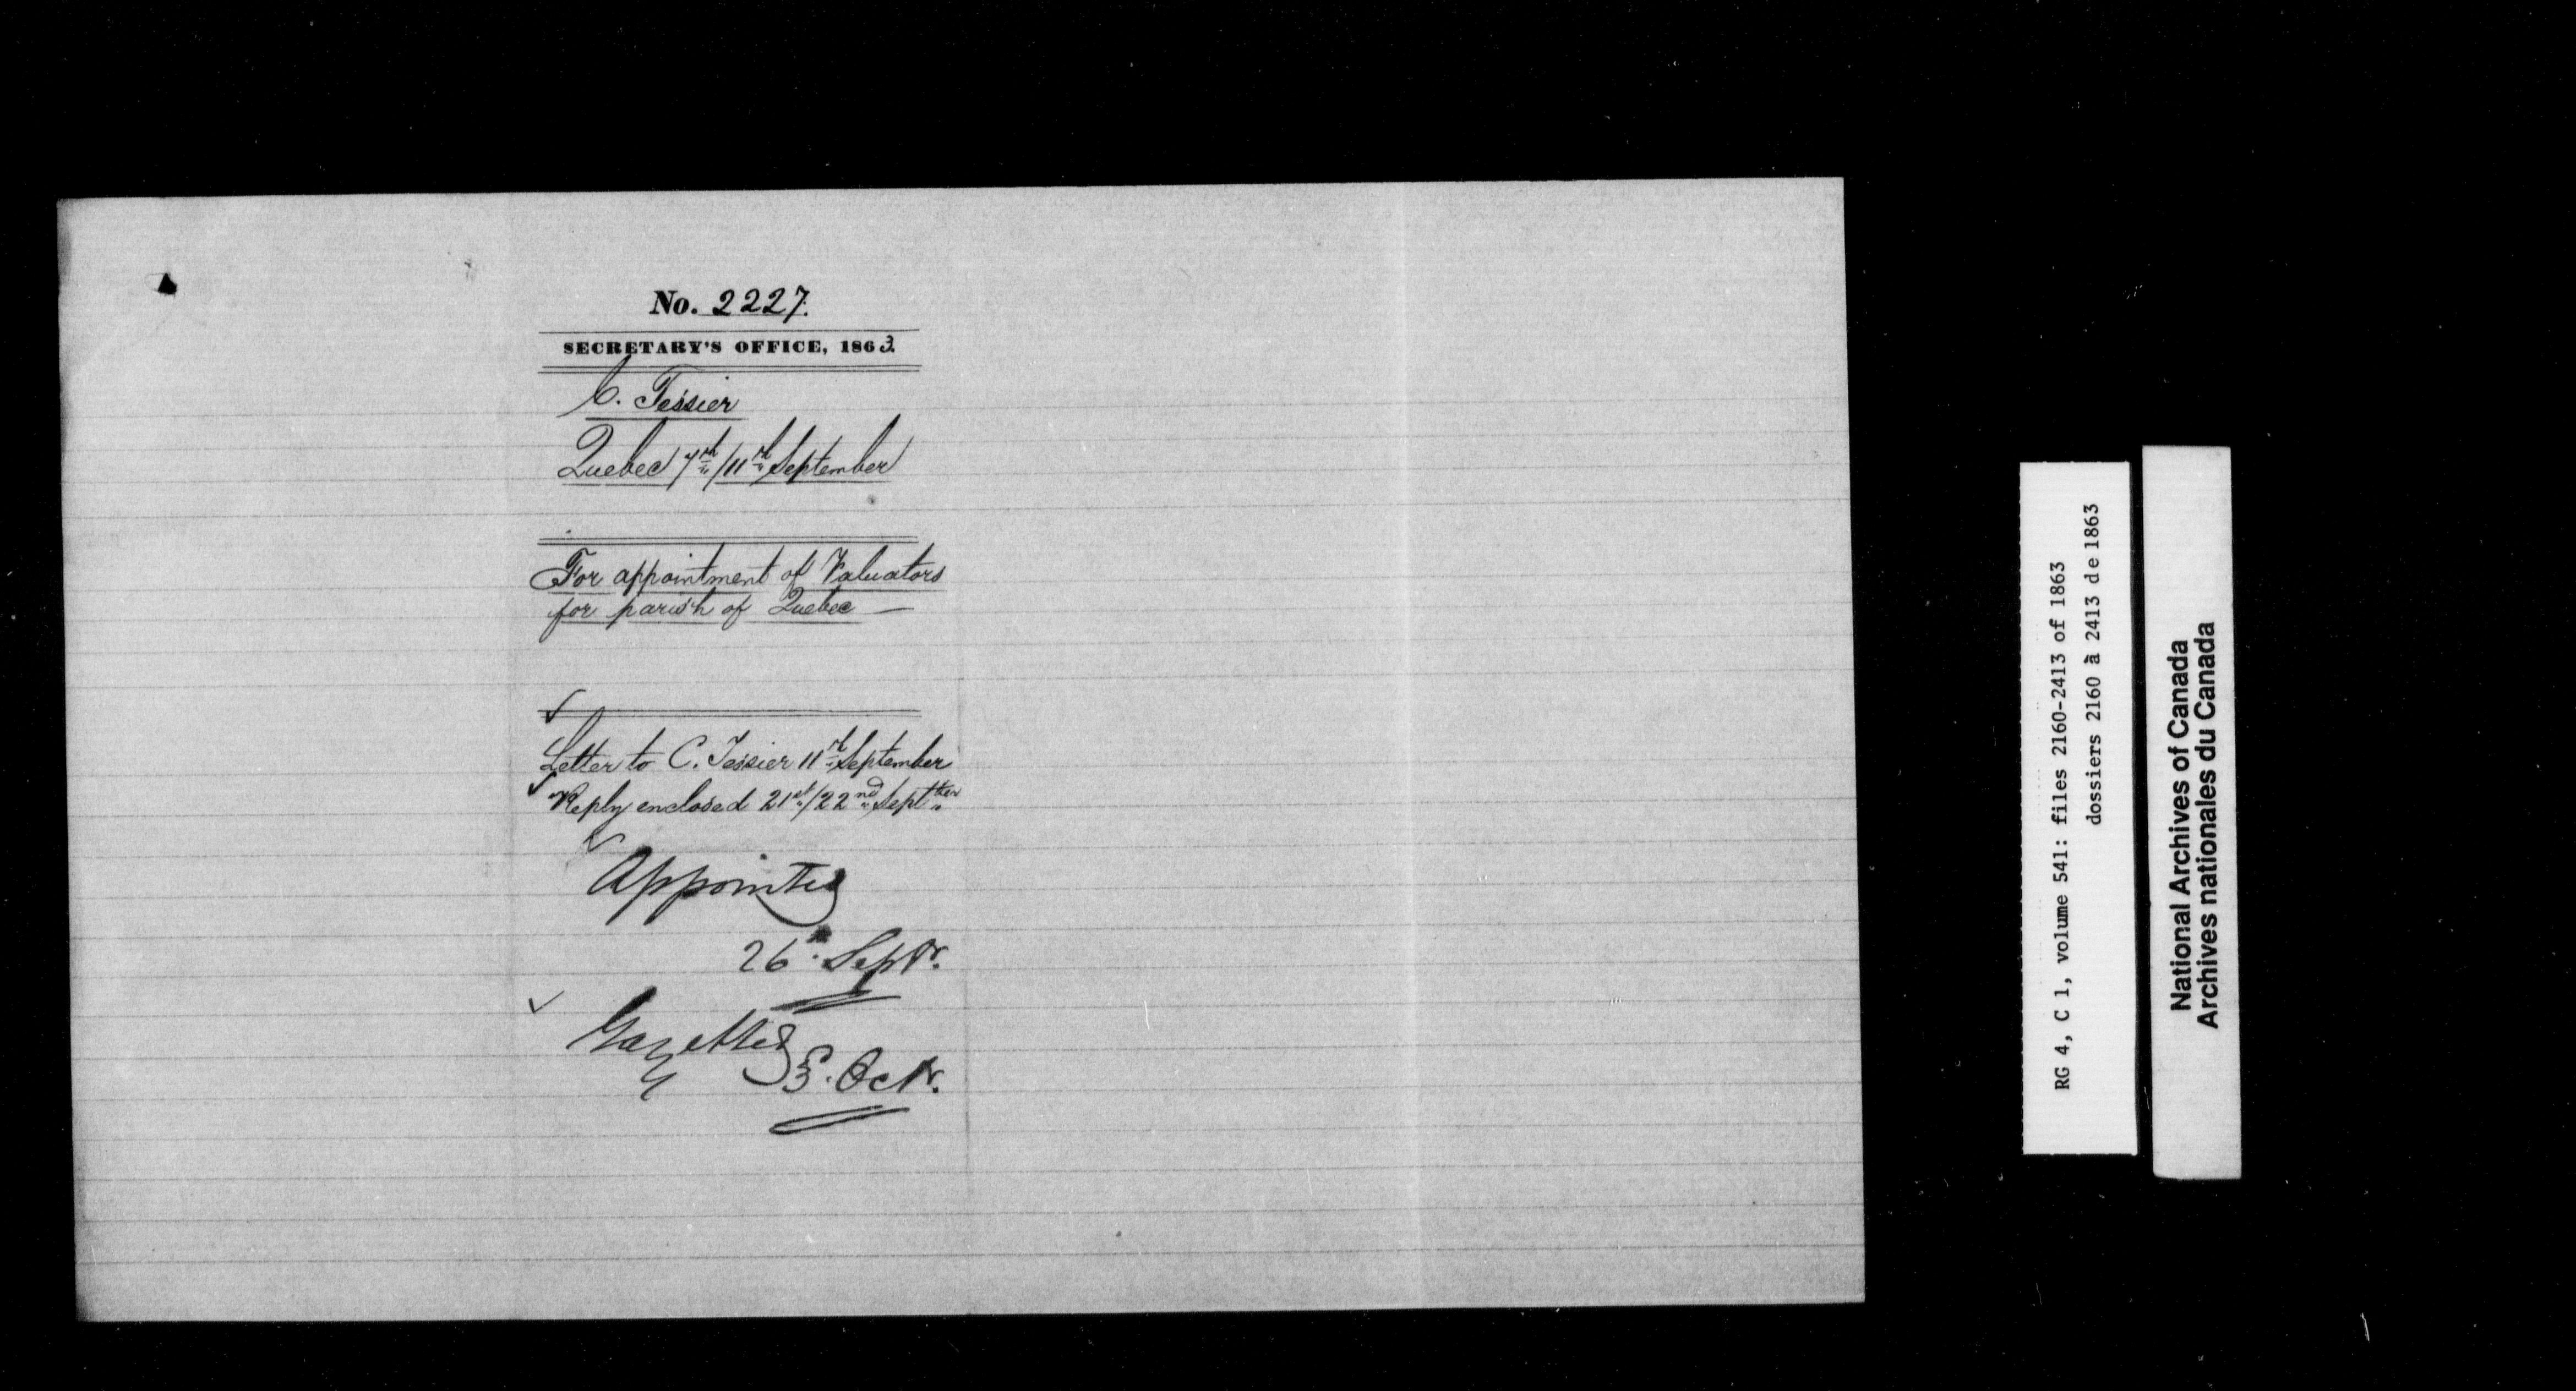 No. 2227.
SECRETARY'S OFFICE, 1863.
C. Tessier
Quebec 7th/11th September
For appointment of Valuators
for parish of Quebec —
Letter to C. Tessier 11th September
Reply enclosed 21st/22nd Septber
Appointed
26 Septr.
Gazetted
3. Octr.
RG 4, C 1, volume 541: files 2160-2413 of 1863
dossiers 2160 à 2413 de 1863
National Archives of Canada
Archives nationales du Canada